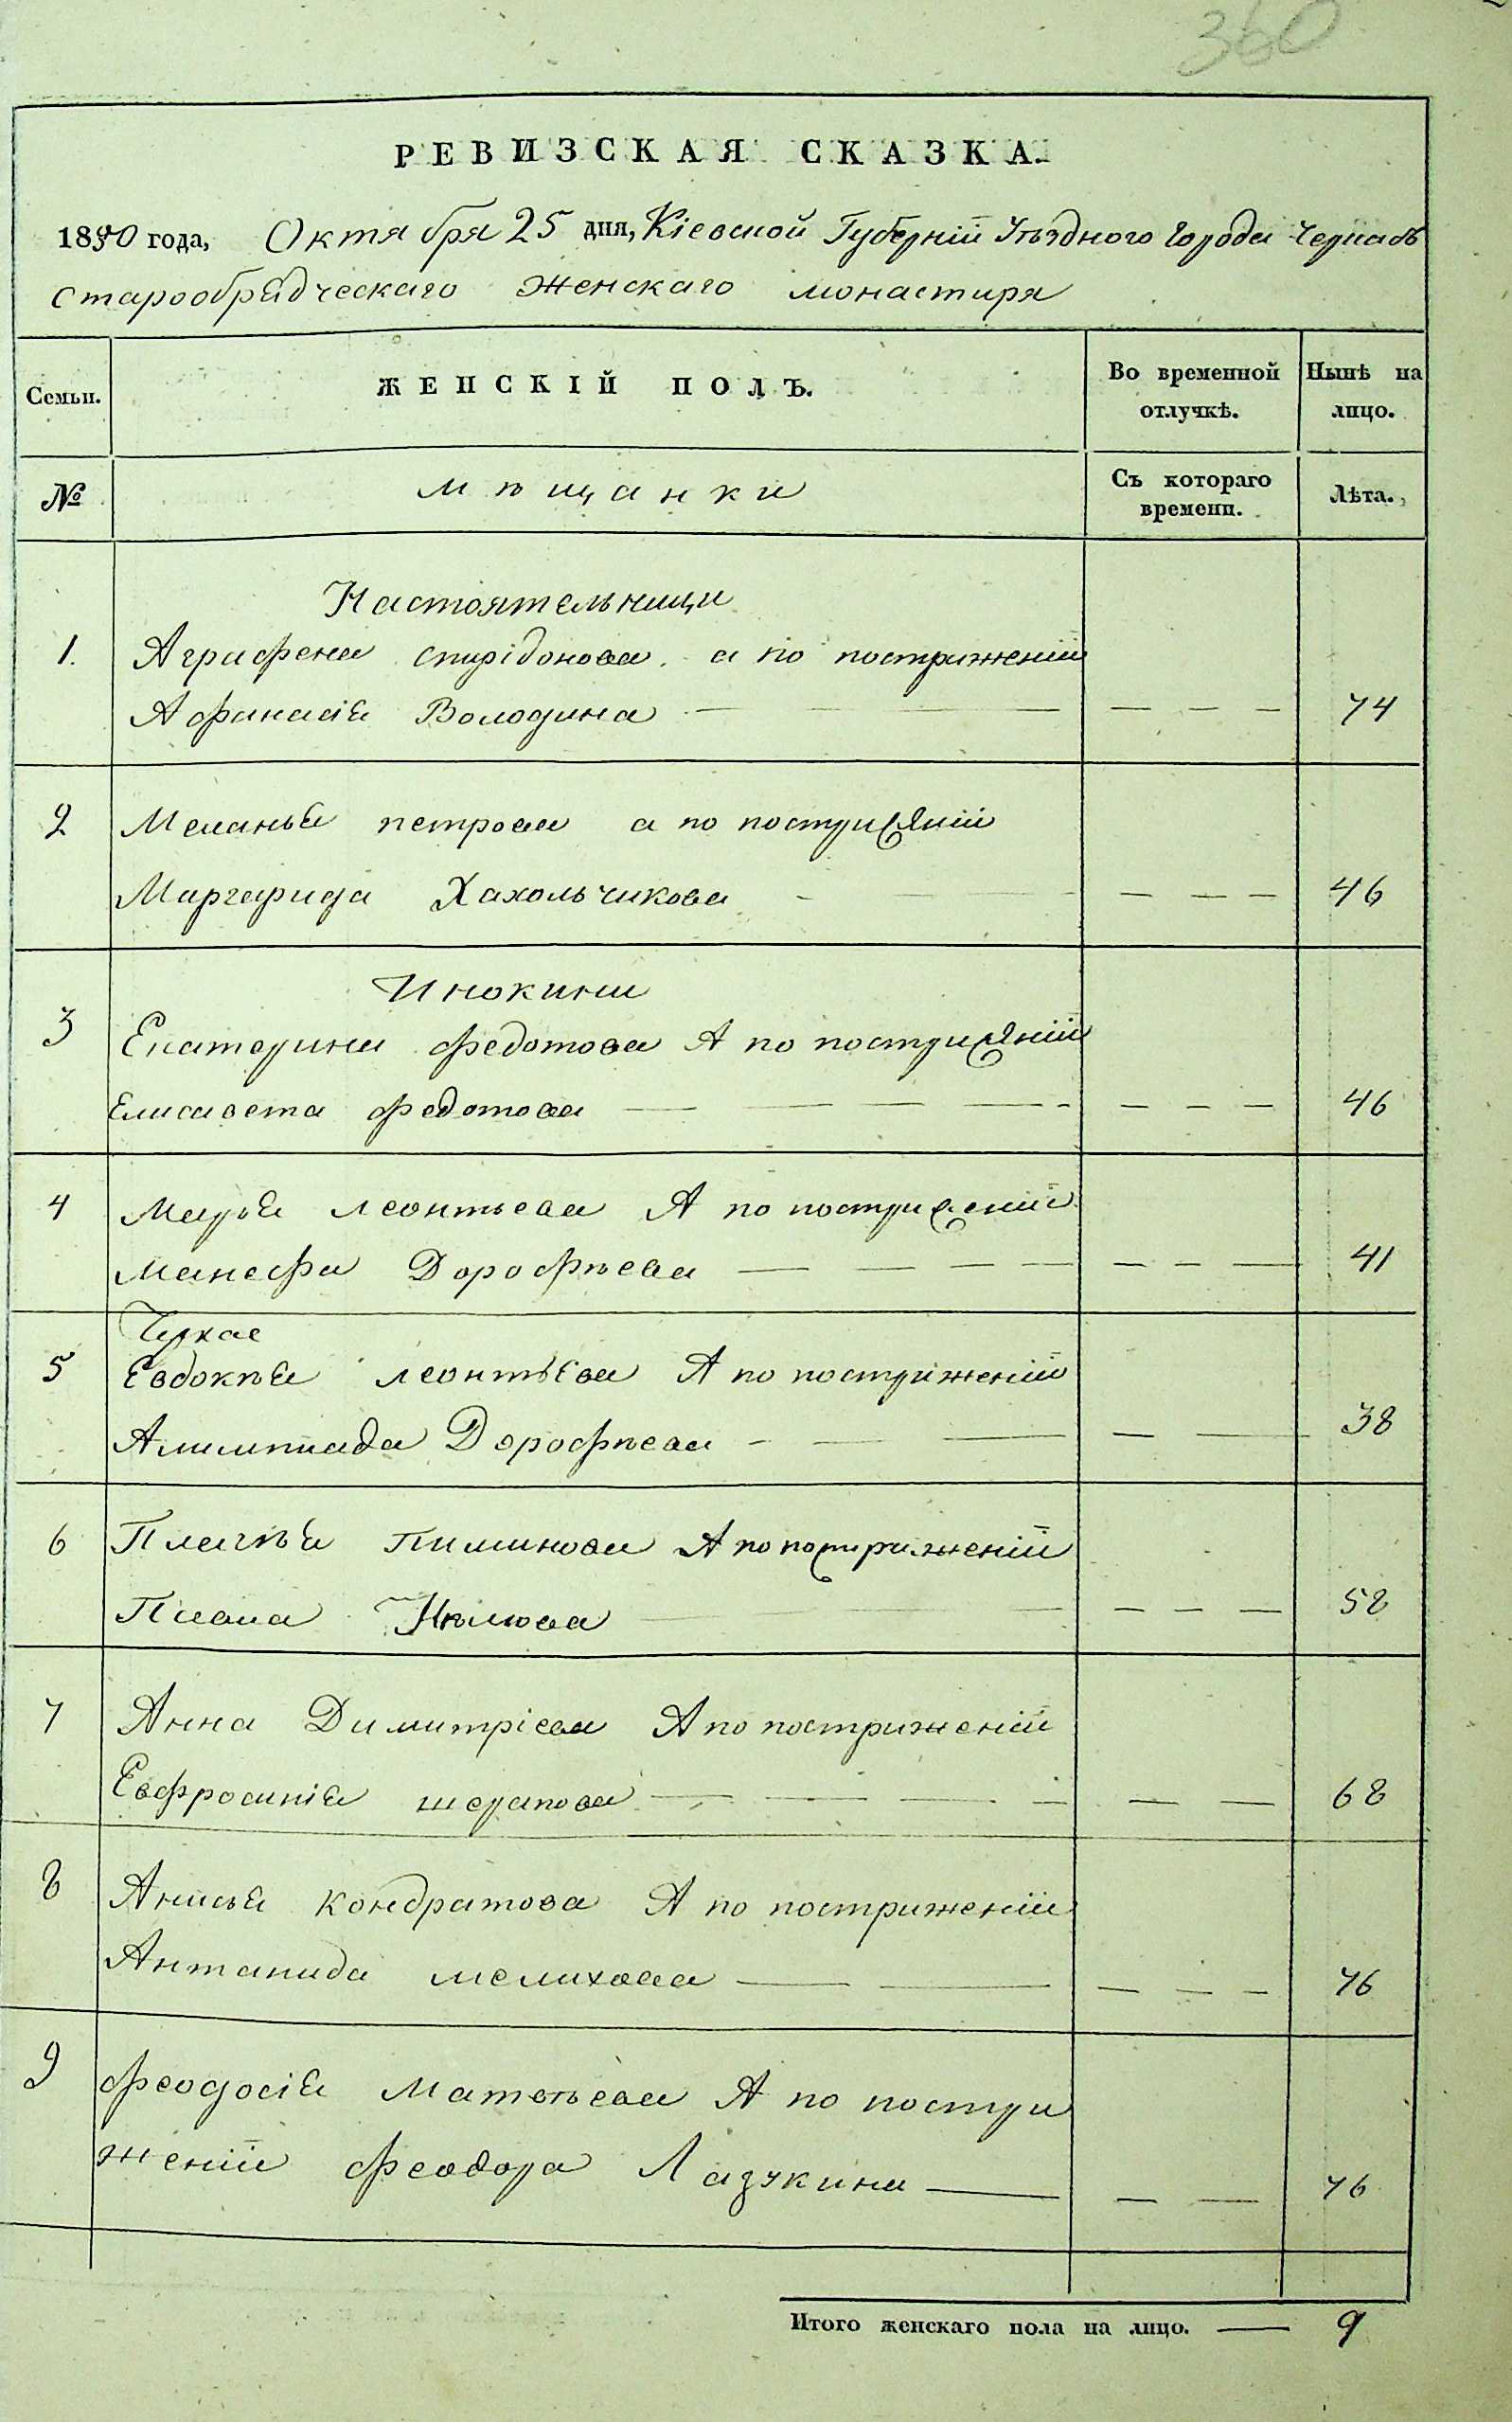 360
РЕВИЗСКАЯ СКАЗКА.
1850 года, Октября 25 дня, Кіевской Губерніи Уѣзднаго города Черкасъ
старообрядческаго женскаго монастиря
Семьи.
ЖЕНСКІЙ ПОЛЪ.
Во временной отлучкѣ.
Нынѣ на лицо.
№
мѣщанки
Съ котораго времени.
Лѣта.
Настоятельници
1. Аграфена спирідонова. а по постриженіи
Афанасія Володина 74
2 Меланья петрова а по пострижѣніи
Маргарида Хахольчикова 46
Инокини
3 Екатерина федотова А по пострижѣніи
Елисавета федотова 46
4 Марья леонтьева А по постриженіи
Манефа Дорофѣева 41
5 Евдокѣя леонтьева А по постриженіи
Алимпиада Дорофѣева 38
6 Пиминова А по постриженіи
58
7 Анна Димитріева А по постриженіи
Евфросинія шарапова 68
8 Анисья кондратова А по постриженіи
Антанида мелихова 76
9 феодосія Матвѣева А по постри
женіи феодора Лазукина 76
Итого женскаго пола на лицо. 9